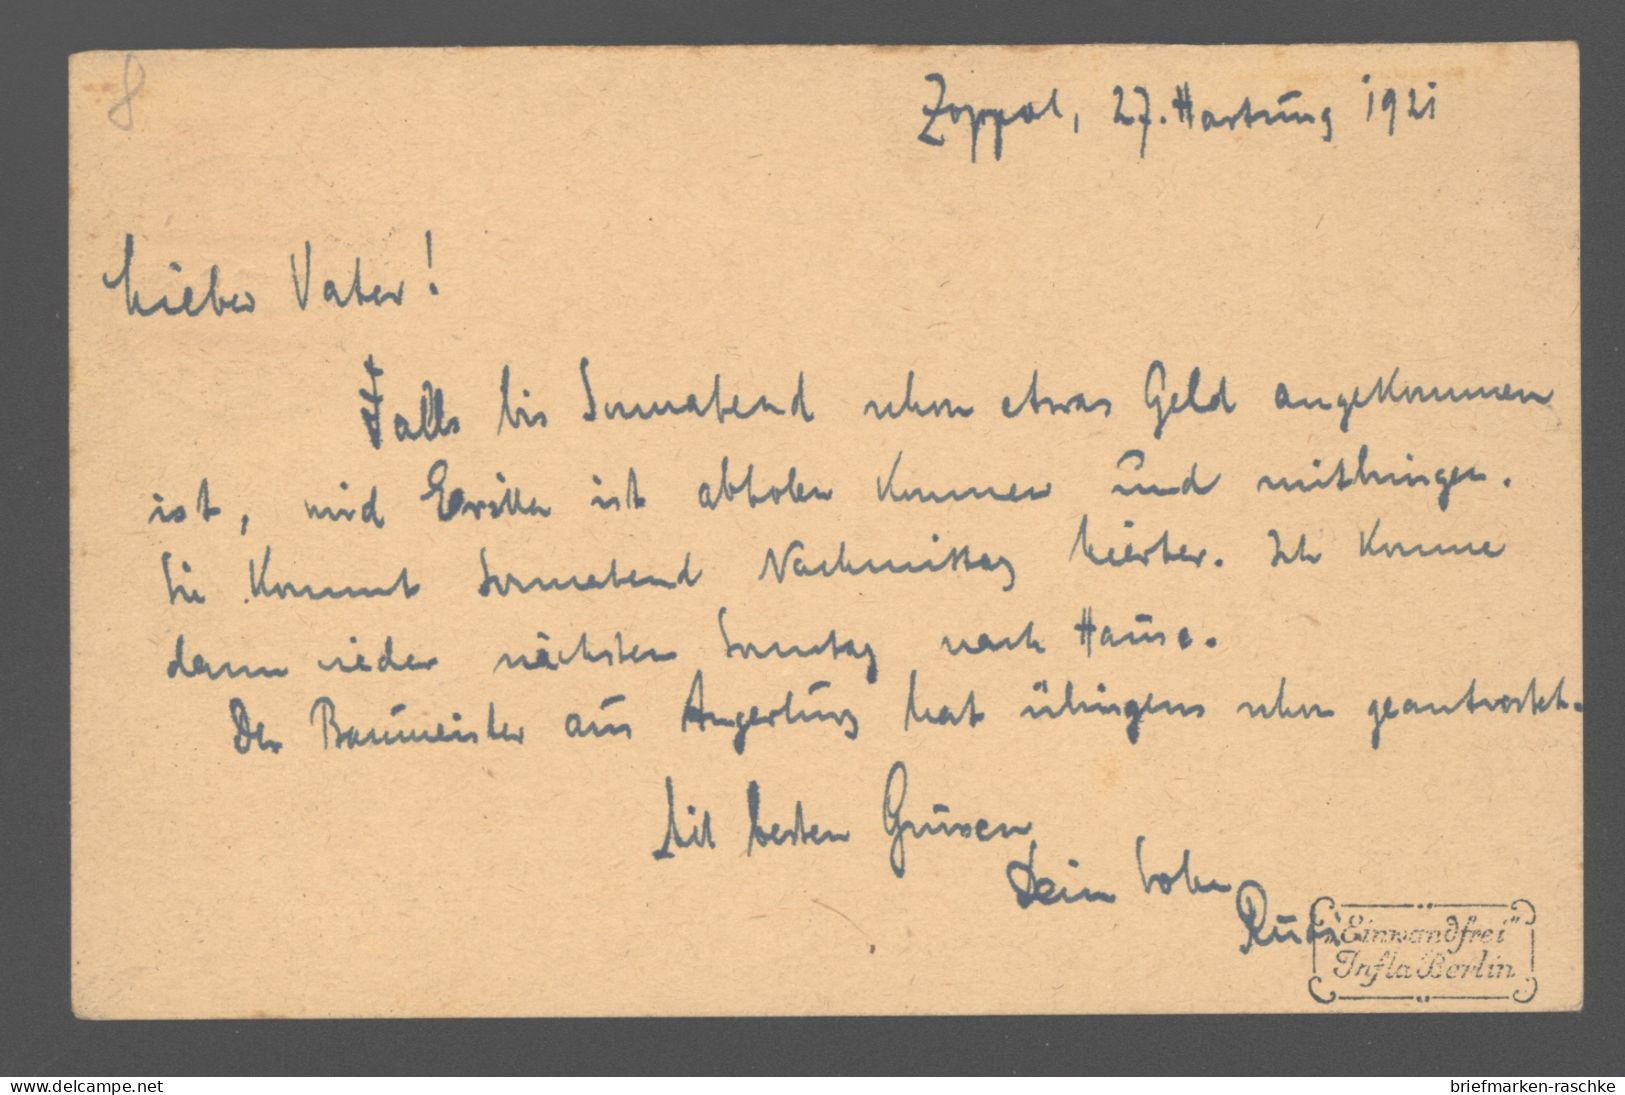 8
Zoppot, 27. Hartung 1921
Lieber Vater!
Falls bis Sonnabend schon etwas Geld angekommen
ist, wird es abholen kommen und mitbringen.
Sie kommt Sonnabend Nachmittag hierher. Ich komme
dann wieder nächsten Sonntag nach Hause.
Der Baumeister aus Angerburg hat übrigens schon geantwortet.
Mit besten Grüssen
Dein Sohn
Rudi
„Einwandfrei"
Infla Berlin
www.delcampe.net
briefmarken-raschke